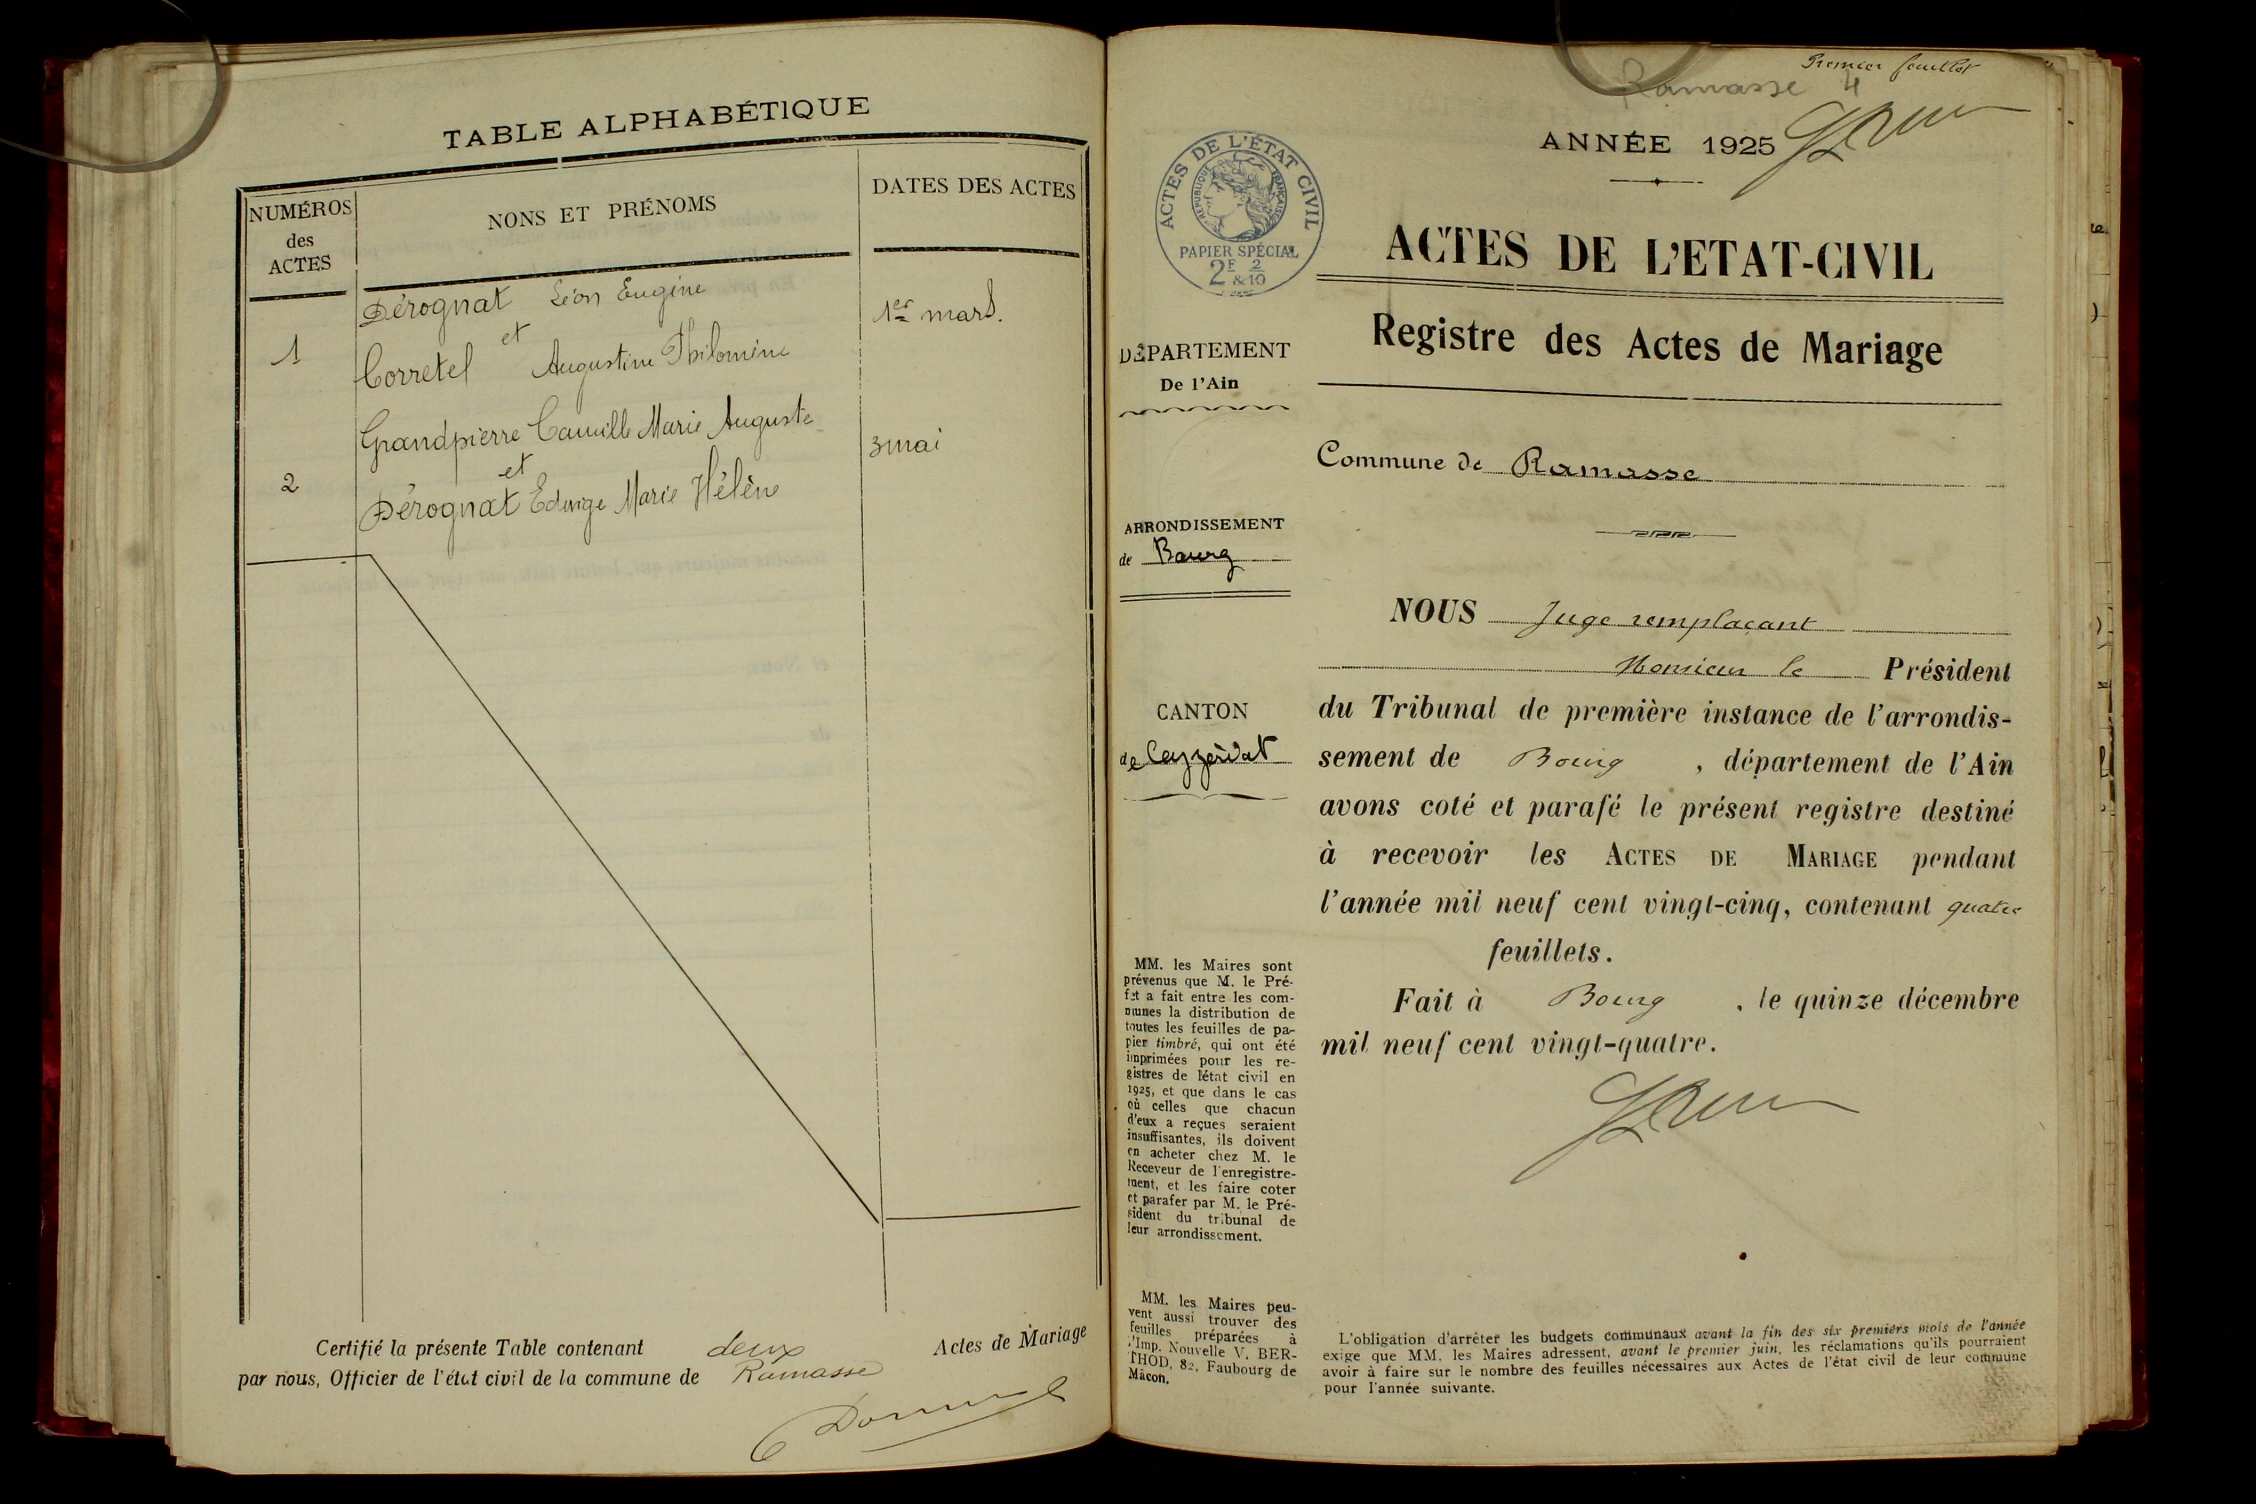 TABLE ALPHABÉTIQUE
NUMÉROS
des
ACTES
NONS ET PRÉNOMS
DATES DES ACTES
1
Dérognat Léon Eugène
et
Corretel Augustine Philomène
1er mars.
2
Grandpierre Camille Marie Auguste
et
Dérognat Edwige Marie Hélène
3 mai
Certifié la présente Table contenant deux Actes de Mariage
par nous, Officier de l'état civil de la commune de Ramasse
Premier feuillet
Ramasse 4
ANNÉE 1925
ACTES DE L'ÉTAT CIVIL
RÉPUBLIQUE FRANÇAISE
PAPIER SPÉCIAL
2F & 2/10
ACTES DE L'ETAT-CIVIL
Registre des Actes de Mariage
DÉPARTEMENT
De l'Ain
Commune de Ramasse
ARRONDISSEMENT
de Bourg
CANTON
de Ceyzériat
NOUS Juge remplaçant
Monsieur le Président
du Tribunal de première instance de l'arrondis-
sement de Bourg, département de l'Ain
avons coté et parafé le présent registre destiné
à recevoir les ACTES DE MARIAGE pendant
l'année mil neuf cent vingt-cinq, contenant quatre
feuillets.
Fait à Bourg, le quinze décembre
mil neuf cent vingt-quatre.
MM. les Maires sont
prévenus que M. le Pré-
fet a fait entre les com-
munes la distribution de
toutes les feuilles de pa-
pier timbré, qui ont été
imprimées pour les re-
gistres de l'état civil en
1925, et que dans le cas
où celles que chacun
d'eux a reçues seraient
insuffisantes, ils doivent
en acheter chez M. le
Receveur de l'enregistre-
ment, et les faire coter
et parafer par M. le Pré-
sident du tribunal de
leur arrondissement.
MM. les Maires peu-
vent aussi trouver des
feuilles préparées à
l'Imp. Nouvelle V. BER-
THOD, 82, Faubourg de
Mâcon.
L'obligation d'arrêter les budgets communaux avant la fin des six premiers mois de l'année
exige que MM. les Maires adressent, avant le premier juin, les réclamations qu'ils pourraient
avoir à faire sur le nombre des feuilles nécessaires aux Actes de l'état civil de leur commune
pour l'année suivante.